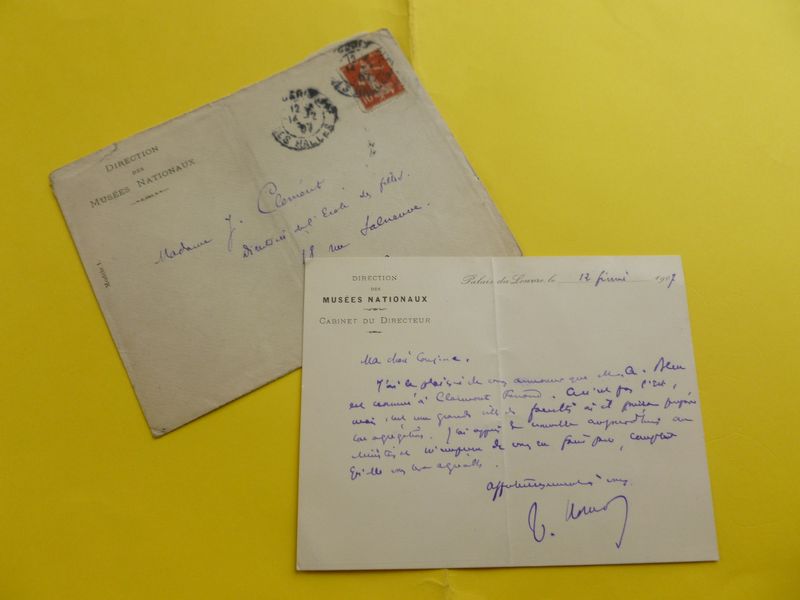 DIRECTION
DES
MUSÉES NATIONAUX
PARIS
12
LES HALLES
Madame J. Clément
Directrice de l'Ecole de filles
18 rue
DIRECTION
DES
MUSÉES NATIONAUX
CABINET DU DIRECTEUR
Palais du Louvre, le 12 février 1907
Ma chère Cousine,
J'ai le plaisir de vous annoncer que M. A.
est nommé à Clermont Ferrand. Ce n'est pas l'Est,
mais c'est une grande ville de facultés où il pourra préparer
son agrégation. J'ai appris la nouvelle aujourd'hui au
Ministère et m'empresse de vous en faire part, comptant
qu'elle vous sera agréable.
Affectueusement à vous